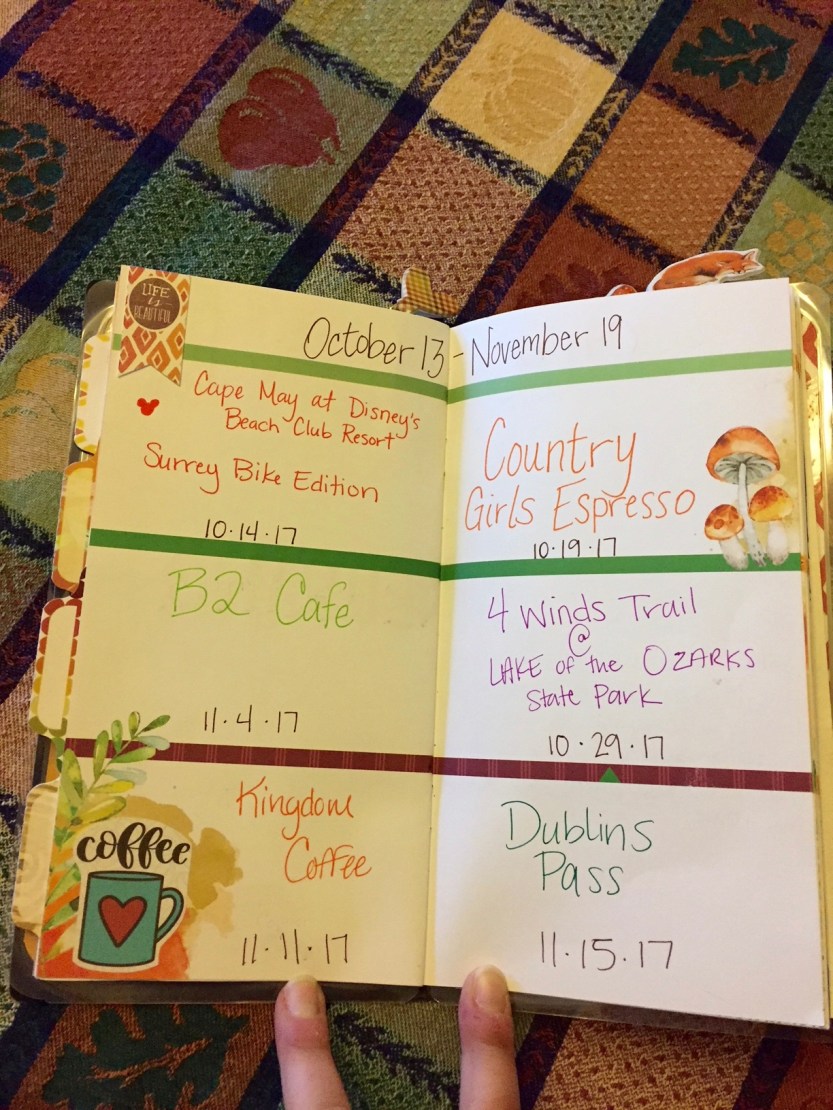 LIFE is BEAUTIFUL
October 13 - November 19
Cape May at Disney's
Beach Club Resort
Surrey Bike Edition
10.14.17
B2 Cafe
11.4.17
coffee
Kingdom
Coffee
11.11.17
Country
Girls Espresso
10.19.17
4 Winds Trail
@
LAKE of the OZARKS
State Park
10.29.17
Dublins
Pass
11.15.17